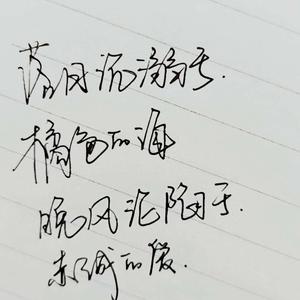 落日沉溺于.
橘色的海
晚风沦陷于.
赤诚的爱.